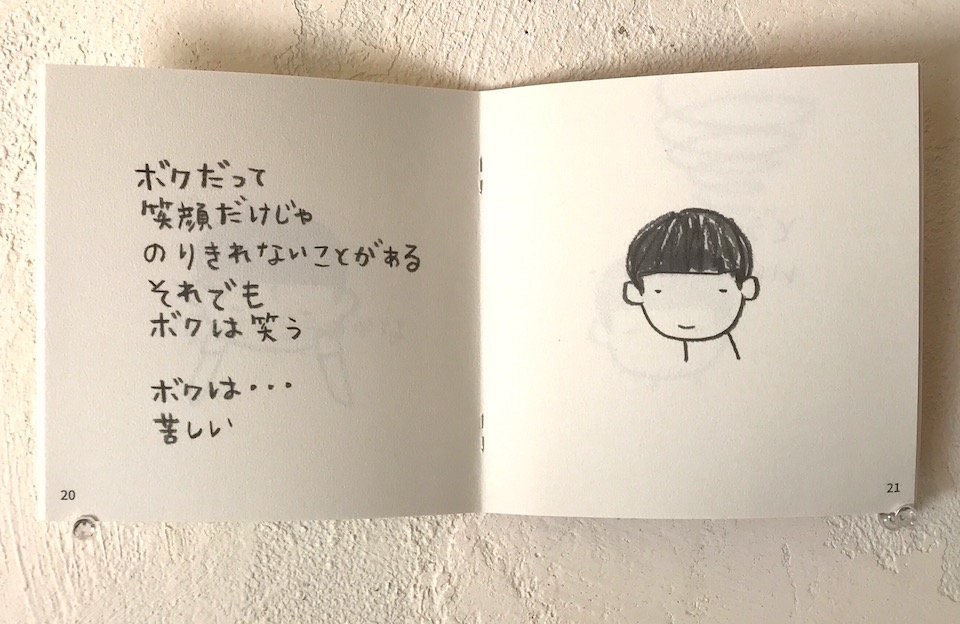 ボクだって
笑顔だけじゃ
のりきれないことがある
それでも
ボクは笑う
ボクは・・・
苦しい
20
21